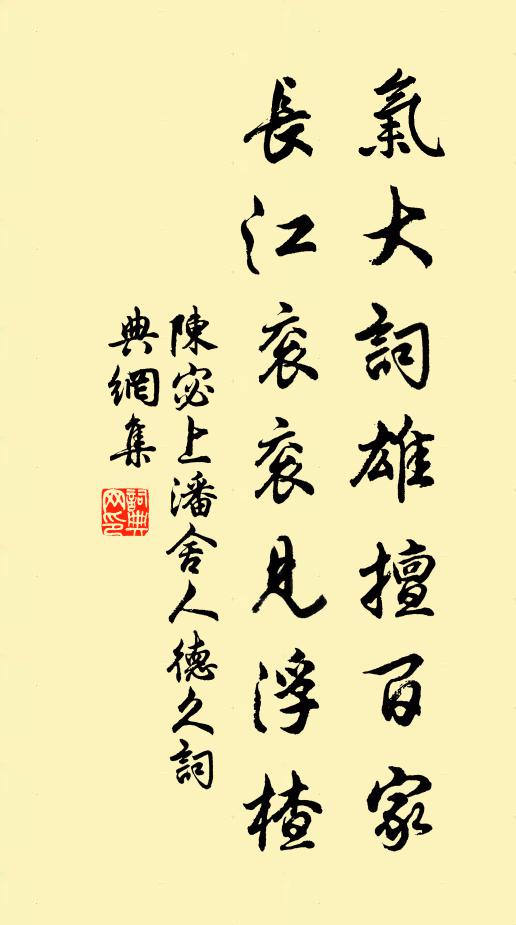 氣大詞雄擅百家
長江衮衮見浮楂
陳宓上潘舍人德久詞
典網集
詞典网印